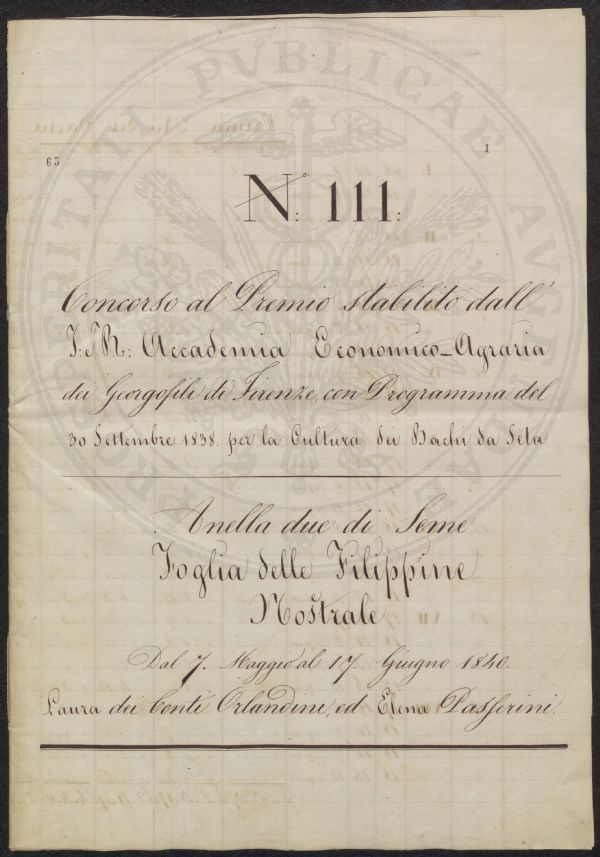 PROSPERITATI PVBLICAE AVGENDAE
65
1
N.° 111.
Concorso al Premio stabilito dall'
I: e R: Accademia Economico=Agraria
dei Georgofili di Firenze, con Programma del
30 Settembre 1838. per la Cultura dei Bachi da Seta
Anella due di Seme
Foglia delle Filippine
Nostrale
Dal 7. Maggio al 17. Giugno 1840.
Laura dei Conti Orlandini, ed Elena Passerini.